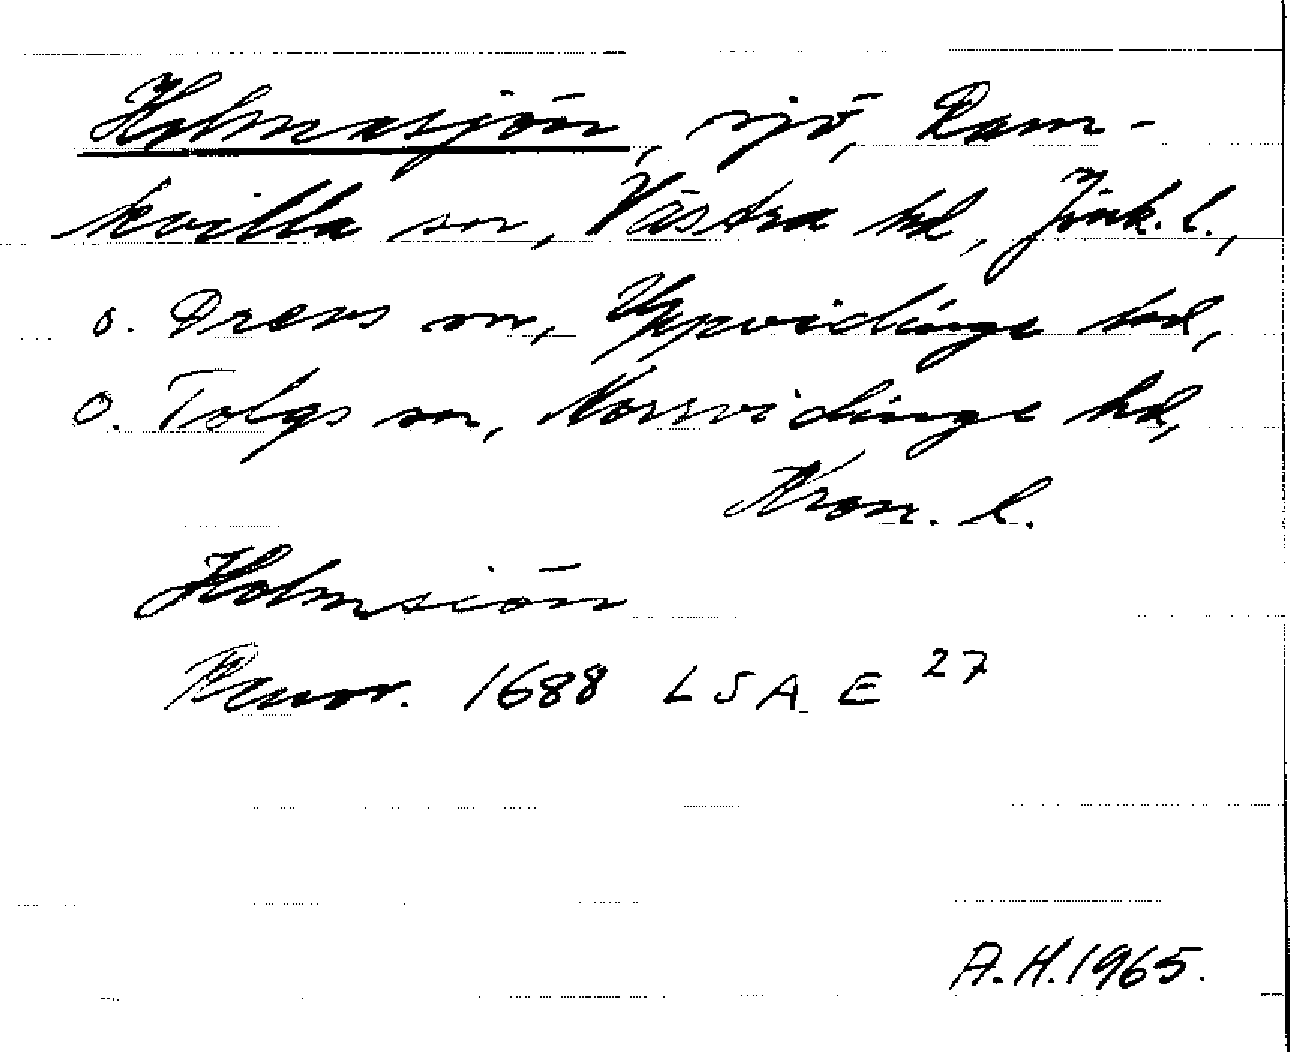 Holmasjön, sjö, Ram-
kvilla sn, Västra hd, Jönk. l.,
o. Drevs sn, Uppvidinge hd,
o. Tolgs sn, Norrvidinge hd,
Kron. l.
Holmsiön
Renov. 1688 LSA E 27
A.H. 1965.